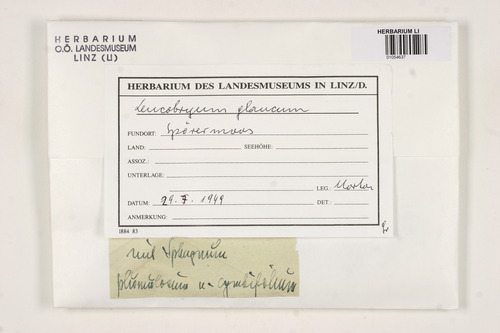 HERBARIUM
O.Ö. LANDESMUSEUM
LINZ (LI)
HERBARIUM LI
01054637
HERBARIUM DES LANDESMUSEUMS IN LINZ/D.
Leucobryum glaucum
FUNDORT: Spörermoos
LAND: SEEHÖHE:
ASSOZ.:
UNTERLAGE:
LEG.:
DATUM: 1949 DET.:
ANMERKUNG:
1884 83
mit Sphagnum
plumulosum u. cymbifolium